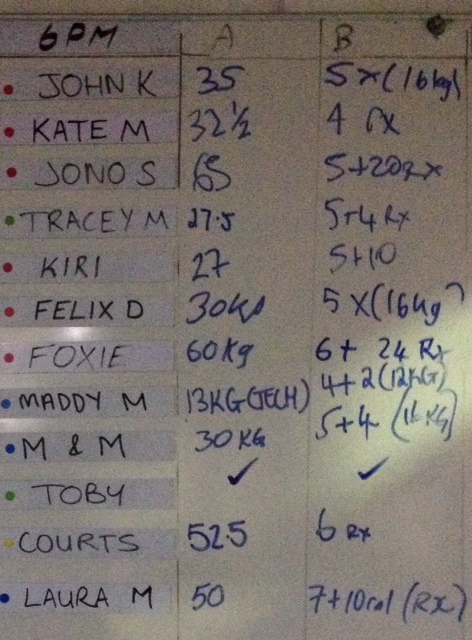 6PM A B
JOHN K 35 5 x (16kg)
KATE M 32½ 4 rx
JONO S 65 5+20rx
TRACEY M 27.5 5+4 Rx
KIRI 27 5+10
FELIX D 30kg 5 X(16kg
FOXIE 60kg 6+ 24 Rx
MADDY M 13KG(TECH) 4+2(12KG)
M & M 30 KG 5+4 KG)
TOBY ✓ ✓
COURTS 52.5 6 Rx
LAURA M 50 7+10cal (Rx)